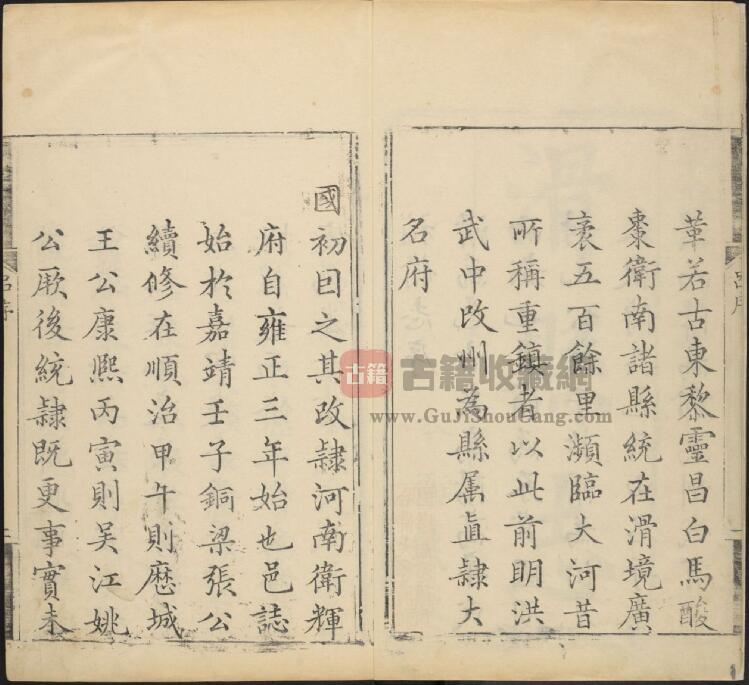 韋若古東黎靈昌白馬酸
棗衛南諸縣統在滑境廣
袤五百餘里瀕臨大河昔
所稱重鎮者以此前明洪
武中改州為縣属直隷大
名府
國初因之其改隷河南衛輝
府自雍正三年始也邑誌
始於嘉靖壬子銅梁張公
續修在順治甲午則歷城
王公康熙丙寅則吴江姚
公厥後統隷既更事實未
古籍
古籍收藏網
www.GuJiShouCang.com